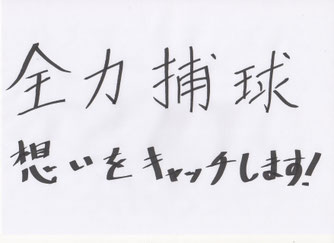 全力捕球
想いをキャッチします!